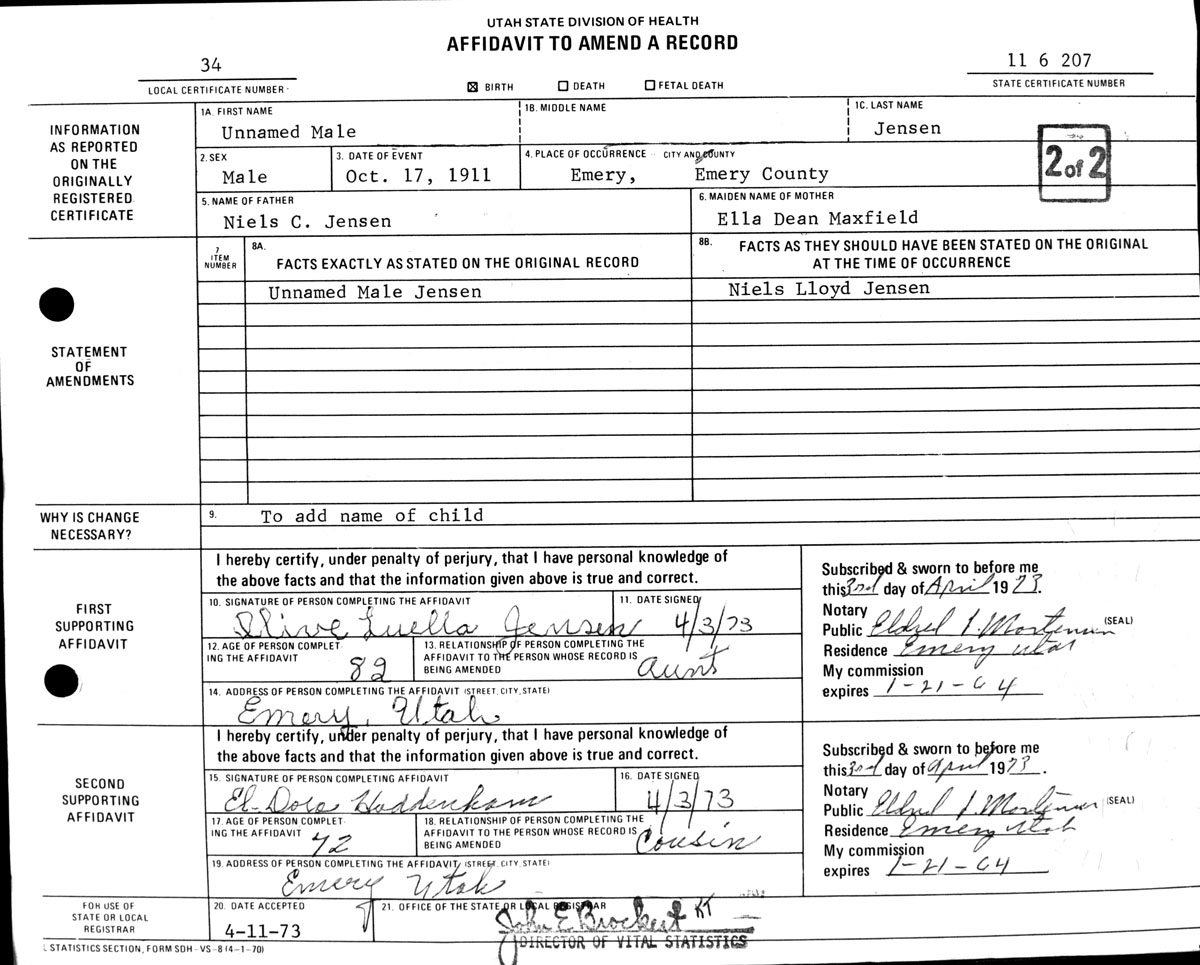 UTAH STATE DIVISION OF HEALTH
AFFIDAVIT TO AMEND A RECORD
34
LOCAL CERTIFICATE NUMBER
☒ BIRTH ☐ DEATH ☐ FETAL DEATH
11 6 207
STATE CERTIFICATE NUMBER
INFORMATION
AS REPORTED
ON THE
ORIGINALLY
REGISTERED
CERTIFICATE
1A. FIRST NAME 1B. MIDDLE NAME 1C. LAST NAME
Unnamed Male Jensen
2. SEX 3. DATE OF EVENT 4. PLACE OF OCCURRENCE CITY AND COUNTY
Male Oct. 17, 1911 Emery, Emery County
2 of 2
5. NAME OF FATHER 6. MAIDEN NAME OF MOTHER
Niels C. Jensen Ella Dean Maxfield
STATEMENT
OF
AMENDMENTS
7
ITEM
NUMBER
8A.
FACTS EXACTLY AS STATED ON THE ORIGINAL RECORD
8B. FACTS AS THEY SHOULD HAVE BEEN STATED ON THE ORIGINAL
AT THE TIME OF OCCURRENCE
Unnamed Male Jensen Niels Lloyd Jensen
WHY IS CHANGE
NECESSARY?
9. To add name of child
FIRST
SUPPORTING
AFFIDAVIT
I hereby certify, under penalty of perjury, that I have personal knowledge of
the above facts and that the information given above is true and correct.
10. SIGNATURE OF PERSON COMPLETING THE AFFIDAVIT 11. DATE SIGNED
Olive Luella Jensen 4/3/73
12. AGE OF PERSON COMPLET-
ING THE AFFIDAVIT 82
13. RELATIONSHIP OF PERSON COMPLETING THE
AFFIDAVIT TO THE PERSON WHOSE RECORD IS
BEING AMENDED Aunt
14. ADDRESS OF PERSON COMPLETING THE AFFIDAVIT (STREET, CITY, STATE)
Emery, Utah
Subscribed & sworn to before me
this 3rd day of April 1973.
Notary
Public Eldred (SEAL)
Residence Emery Utah
My commission
expires 1-21-64
SECOND
SUPPORTING
AFFIDAVIT
I hereby certify, under penalty of perjury, that I have personal knowledge of
the above facts and that the information given above is true and correct.
15. SIGNATURE OF PERSON COMPLETING AFFIDAVIT 16. DATE SIGNED
4/3/73
17. AGE OF PERSON COMPLET-
ING THE AFFIDAVIT 72
18. RELATIONSHIP OF PERSON COMPLETING THE
AFFIDAVIT TO THE PERSON WHOSE RECORD IS
BEING AMENDED Cousin
19. ADDRESS OF PERSON COMPLETING THE AFFIDAVIT (STREET, CITY, STATE)
Emery Utah
Subscribed & sworn to before me
this 3rd day of April 1973.
Notary
Public Eldred (SEAL)
Residence Emery Utah
My commission
expires 1-21-64
FOR USE OF
STATE OR LOCAL
REGISTRAR
20. DATE ACCEPTED
4-11-73
21. OFFICE OF THE STATE OR LOCAL REGISTRAR
John E Brockert KT
DIRECTOR OF VITAL STATISTICS
L STATISTICS SECTION, FORM SDH-VS-8 (4-1-70)